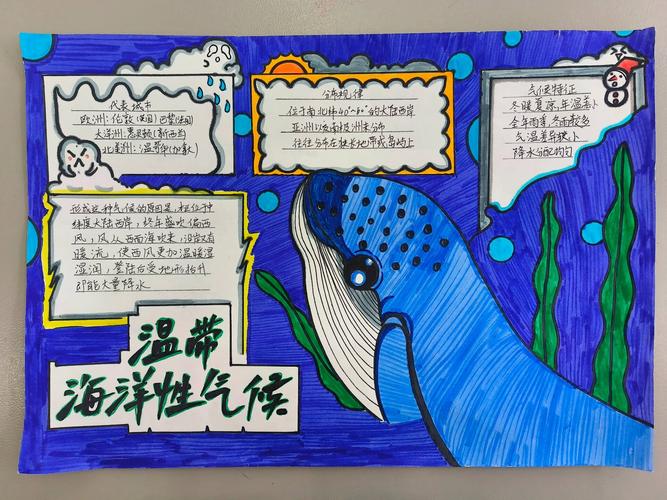 代表城市
欧洲：伦敦（英国）巴黎（法国）
大洋洲：惠灵顿（新西兰）
北美洲：温哥华（加拿大）
分布规律
位于南北纬40°~60°的大陆西岸
亚洲以及南极洲未分布
往往分布在狭长地带或岛屿上
气候特征
冬暖夏凉，年温差小
全年雨季，冬雨较多
气温差异较小
降水分配均匀
形成这种气候的原因是，在位于中
纬度大陆西岸，终年盛吹偏西
风，风从西面海吹来，沿岸又有
暖流，使西风更加温暖湿
湿润，登陆后受地形抬升
即能大量降水
温带
海洋性气候